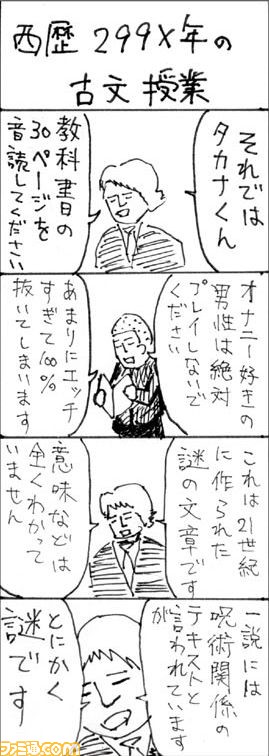 西歴299X年の
古文授業
それでは
タカナくん
教科書日の
30ページを
音読してください
オナニー好きの
男性は絶対
プレイしないで
ください
あまりにエッチ
すぎて100%
抜いてしまいます
これは21世紀
に作られた
謎の文章です
意味などは
全くわかって
いません
一説には
呪術関係の
テキストと
言われています
が
とにかく
謎です
ファミ通.com